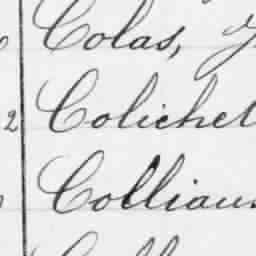 Colas,
2 Colichet
Colliaus